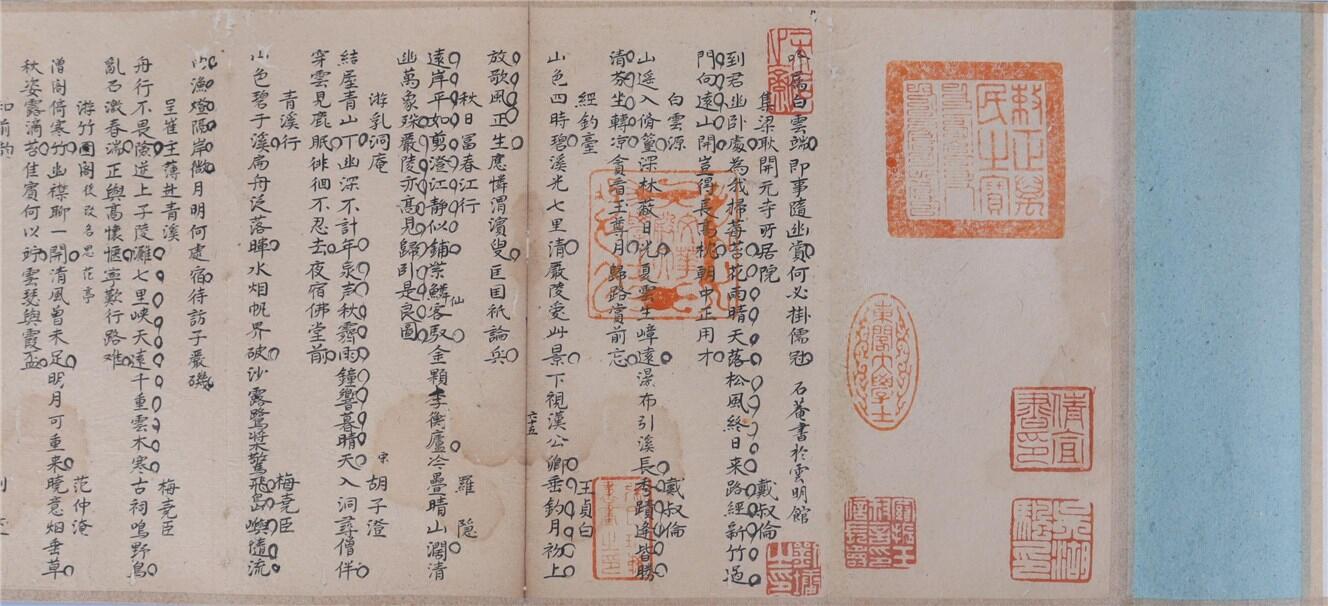 東閣大學士
吟屬白雲端即事隨幽賞何必掛儒冠 石菴書於雲明館
集梁耿開元寺所居院 戴叔倫
到君幽卧處為我掃莓苔花雨晴天落松風終日来路經新竹過
門向遠山開豈得長高枕朝中正用才
白雲源 戴叔倫
山遥入脩篁深林蔽日光夏雲生嶂遠瀑布引溪長秀蹟逢皆勝
清芬坐轉凉貪看玉尊月歸路賞前忘
經釣臺 王貞白
山色四時碧溪光七里清嚴陵愛此景下視漢公卿垂釣月初上
放歌風正生應憐渭濱叟匡国祇論兵
六十五
秋日富春江行 羅隐
遠岸平如剪澄江静似鋪紫鱗客馭金顆李衡廬冷疊晴山濶清
仙
幽萬象殊嚴陵亦髙見歸卧是良圖
游乳洞庵 宋 胡子澄
結屋青山下幽深不計年泉声秋霽雨鐘響暮晴天入洞尋僧伴
穿雲見鹿眠徘徊不忍去夜宿佛堂前
青溪行 梅尭臣
山色碧于溪扁舟泛落暉水烟帆界破沙露鷺槳驚飛島嶼隨流
漁燈隔岸微月明何處宿待訪子嚴磯
呈崔主薄赴青溪 梅尭臣
舟行不畏險逆上子陵灘七里峡天遠千重雲木寒古祠鳴野鳥
亂石激春湍正與高懷愜寧歎行路难
游竹圊閣後改名思范亭 范仲淹
僧閣倚寒竹幽襟聊一開清風曾未足明月可重来曉意烟垂草
秋姿露滴苔佳賓何以雲瑟與霞盃
和前韵